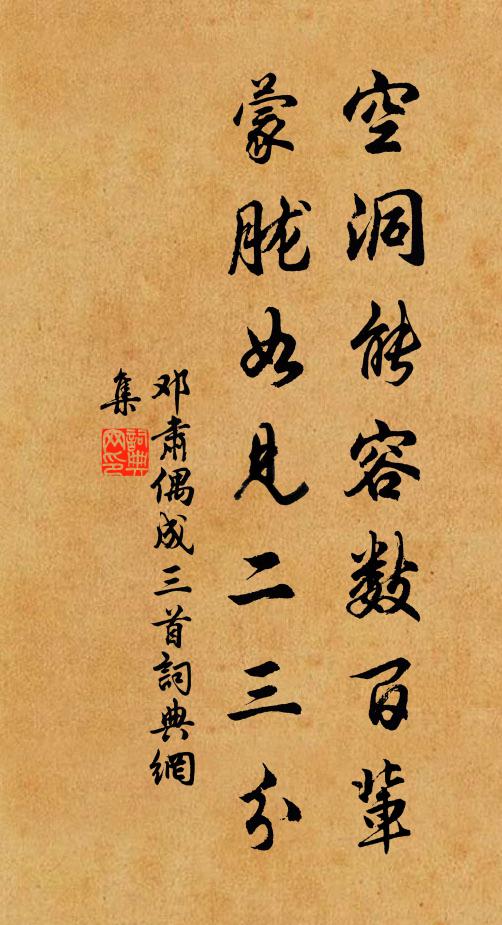 空洞能容数百辈
蒙胧如见二三分
邓肃偶成三首詞典網
集
詞典網印